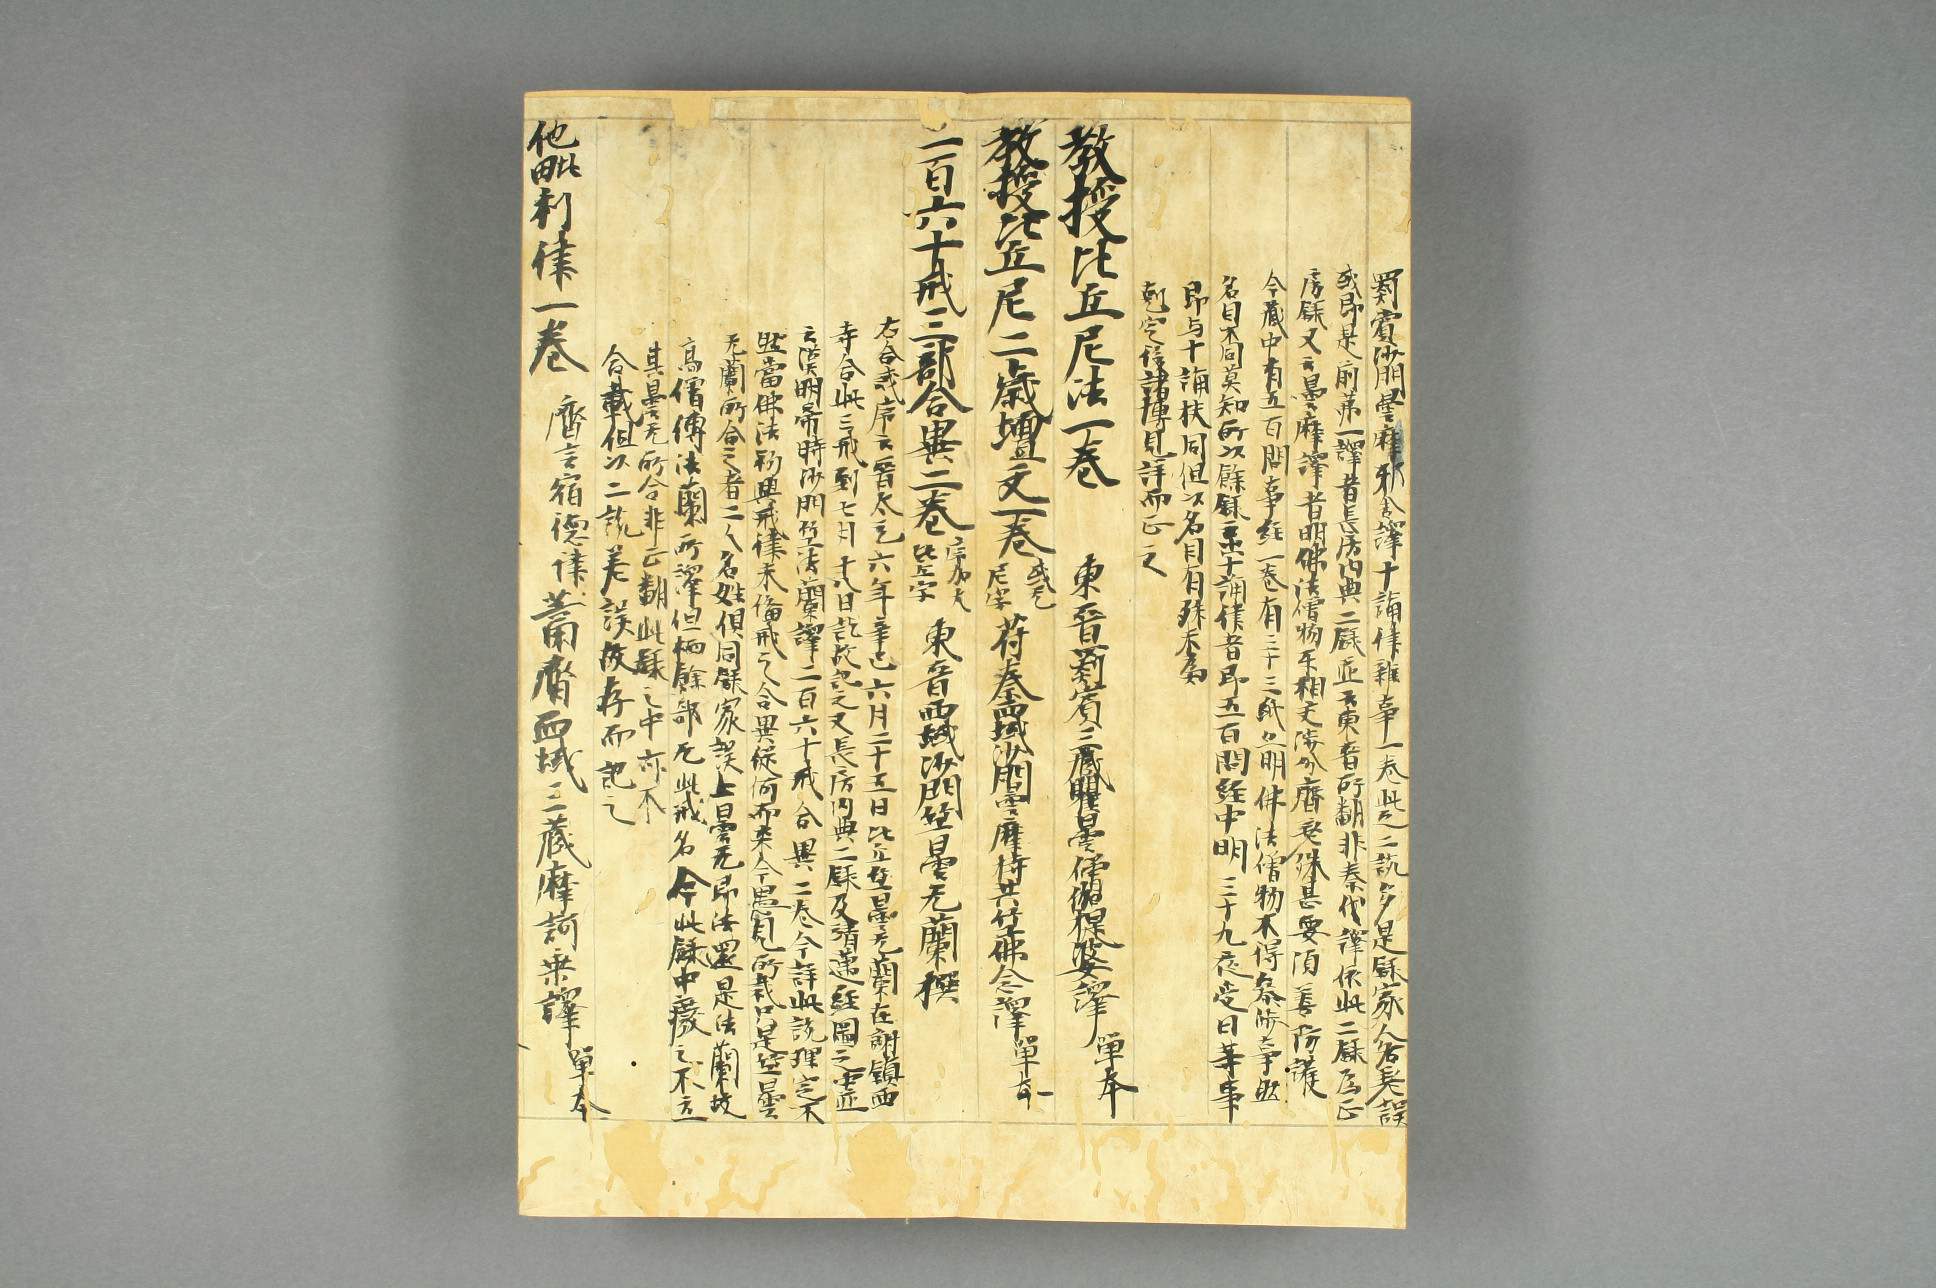 罽賓沙門曇摩耶舍譯十誦律雜事一卷此之二說多是錄家人名差誤
或即是前第一譯昔長房內典二錄並云東晉所翻非秦代譯依此二錄為正
房錄又云曇摩譯者明佛法僧物互相交涉分齊差殊甚要須善防護
今藏中有五百問事經一卷有三十三紙亦明佛法僧物不得參涉事與
名目不同莫知所以餘錄云十誦律者即五百問經中明三十九夜受日等事
即与十誦扶同但以名目有殊未為
剋定後諸博見詳而正之
教授比丘尼法一卷 東晉罽賓三藏瞿曇僧伽提婆譯 單本
教授比丘尼二歲壇文一卷 或无尼字 苻秦西域沙門曇摩持共竺佛念譯 單本
二百六十戒三部合異二卷 序加大比丘字 東晉西域沙門竺曇无蘭撰
右合戒序云晉太元六年辛巳六月二十五日比丘竺曇无蘭在謝鎮西
寺合此三戒到七月十八日訖故記之又長房內典二錄及靖邁經圖之中並
云漢明帝時沙門竺法蘭譯二百六十戒合異二卷今詳此說理定不
然當佛法初興戒律未備戒之合異從何而來今愚見所裁只是竺曇
无蘭所合之者二人名姓俱同錄家誤上曇无即法還是法蘭故
高僧傳法蘭所譯但標餘部无此戒名今此錄中廢之不立
其曇无所合非正翻此錄之中亦不
合載但以二說差誤故存而記之
他毗利律一卷 齊言宿德律 蕭齊西域三藏摩訶乘譯 單本